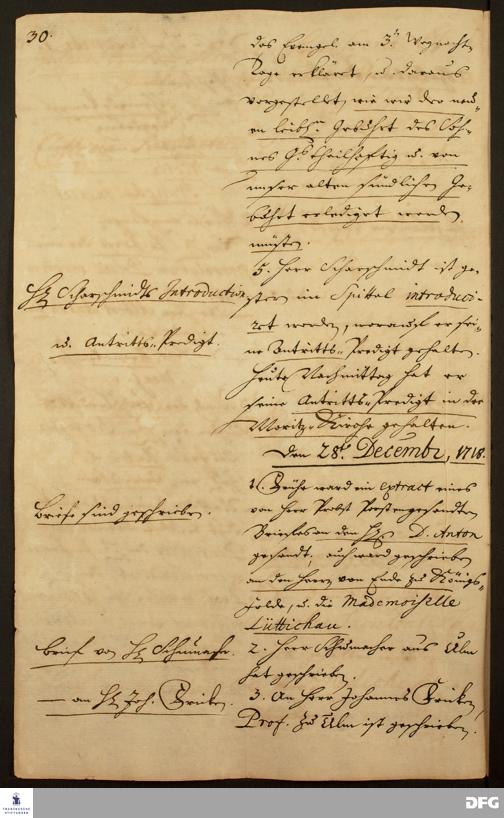 30.
das Evangel. am 3. Weynacht
Tage erkläret, u. daraus
vorgestellet, wie wir der neu-
en leibl. Gebuhrt des Soh-
nes G. theilhafftig u. von
unser alten sündlichen Ge-
buhrt erlediget werden
müsten.
Hr. Scharschmidts Introduction
u. Antritts-Predigt.
5. Herr Scharschmidt ist ge-
stern im Spittal introduci-
ret worden, worauf er sei-
ne Antritts-Predigt gehalten.
Heute Nachmittag hat er
seine Antritts-Predigt in der
Moritz-Kirche gehalten.
Den 28. Decembr, 1718.
Briefe sind geschrieben.
1. Frühe ward ein extract eines
von Herr Probst Porst gesandten
Briefes an den Hn D. Anton
gesandt; auch ward geschrieben
an den Herrn von Ende zu Königs-
felde, u. die Mademoiselle
Lüttichau.
Brief von Hr Schumacher.
2. Herr Schumacher aus Ulm
hat geschrieben.
— an Hr Joh. Fricken.
3. An Herr Johannes Fricken,
Prof. zu Ulm ist geschrieben.
FRANCKESCHE STIFTUNGEN
DFG